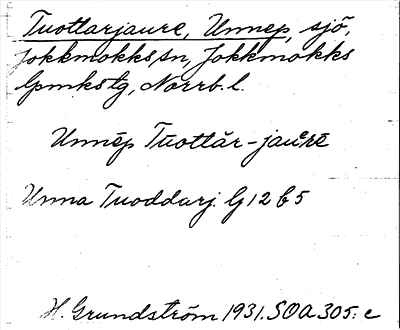 Tuottarjaure, Unnep, sjö,
Jokkmokks sn, Jokkmokks
lpmkstg, Norrb. l.
Unnēp Tuottăr-jauᵉrē
Unna Tuoddarj. G 12 b 5
H. Grundström 1931. SOA 305: c